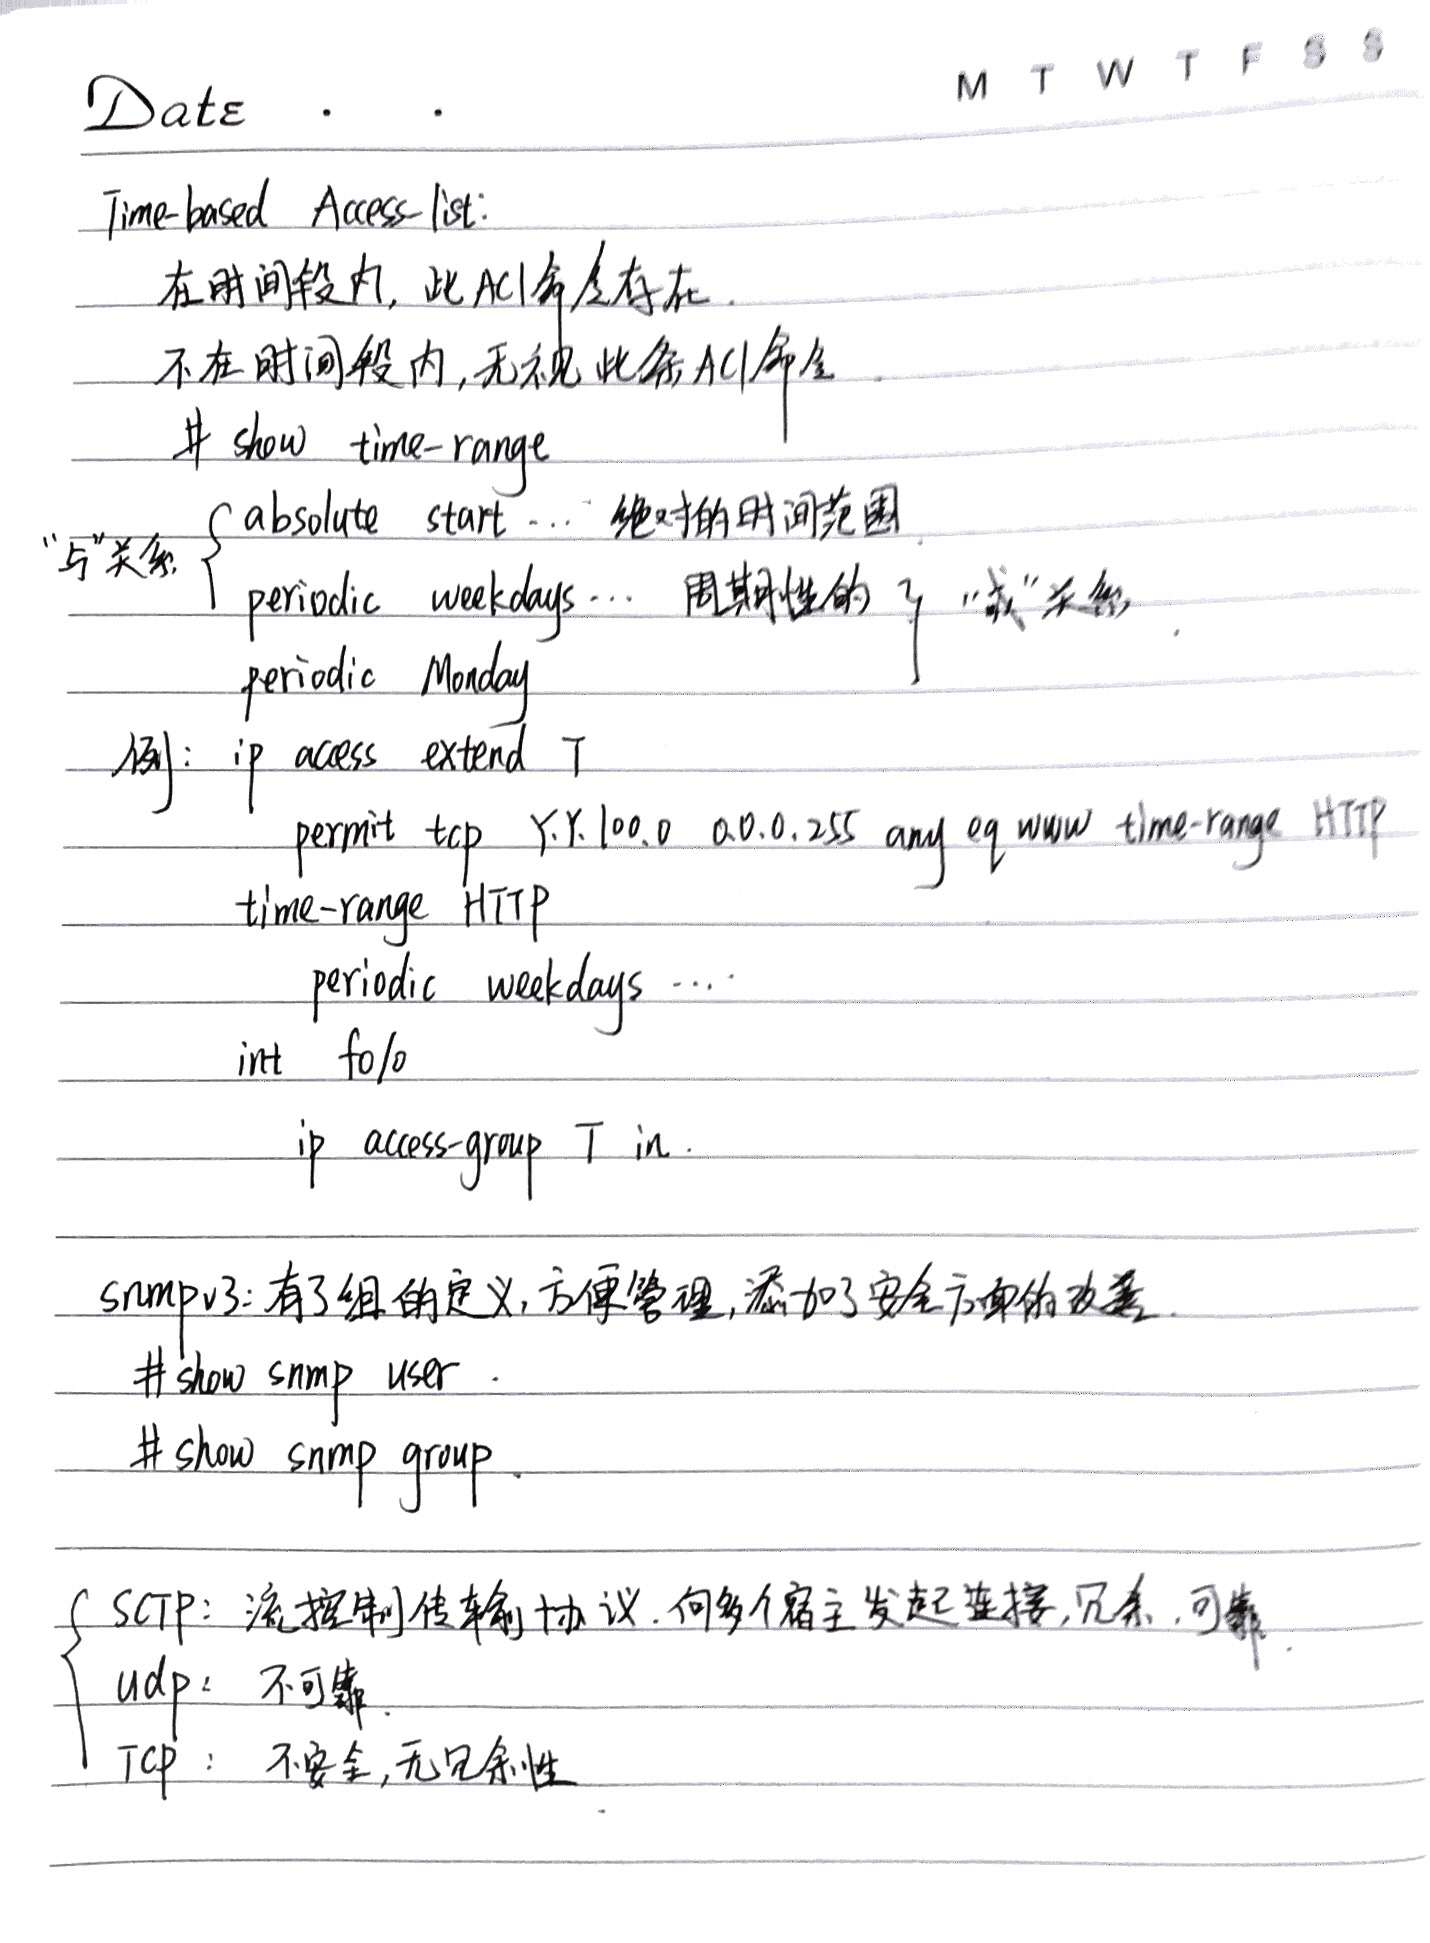 M T W T F S S
Date . .
Time-based Access-list:
在时间段内, 此ACl命令存在.
不在时间段内, 无视此条ACl命令.
# show time-range
absolute start ... 绝对的时间范围.
"与"关系
periodic weekdays... 周期性的 } "或"关系.
periodic Monday
例: ip access extend T
permit tcp Y.Y.100.0 0.0.0.255 any eq www time-range HTTP
time-range HTTP
periodic weekdays ....
int f0/0
ip access-group T in.
snmpv3: 有了组的定义, 方便管理, 添加了安全方面的改善.
# show snmp user.
# show snmp group.
SCTP: 流控制传输协议. 向多个宿主发起连接, 冗余, 可靠.
udp: 不可靠.
TCP: 不安全, 无冗余性.